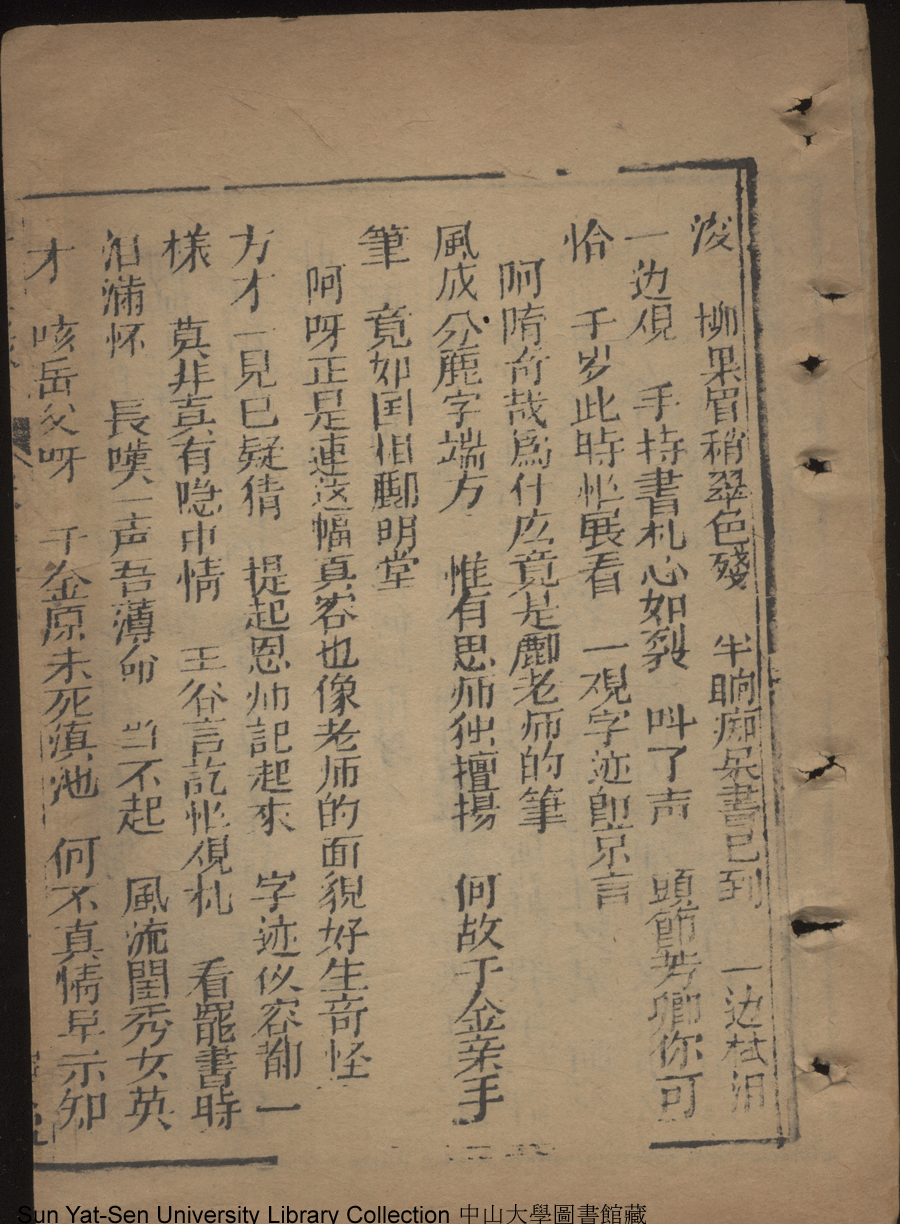 浚　柳果眉稍翠色殘　半晌痴呆書已到　一边拭泪
一边覌　手持書札心如裂　叫了声　頭節芳卿你可
恰　千岁此時忙展看　一覌字迹即京言
阿隋奇哉爲什庅竟是酈老师的筆
風成分鹿字端方　惟有思师独擅揚　何故于金亲手
筆　竟如国相酈明堂
阿呀正是連这幅真容也像老师的面貌好生奇怪
方才一見已疑猜　提起恩师記起來　字迹似容都一
樣　莫非真有隐中情　王谷言訖忙覌札　看罷書時
泪滿怀　長嘆一声吾薄命　当不起　風流閨秀女英
才　咳岳父呀　千金原未死滇池　何不真情早示知
Sun Yat-Sen University Library Collection 中山大學圖書館藏